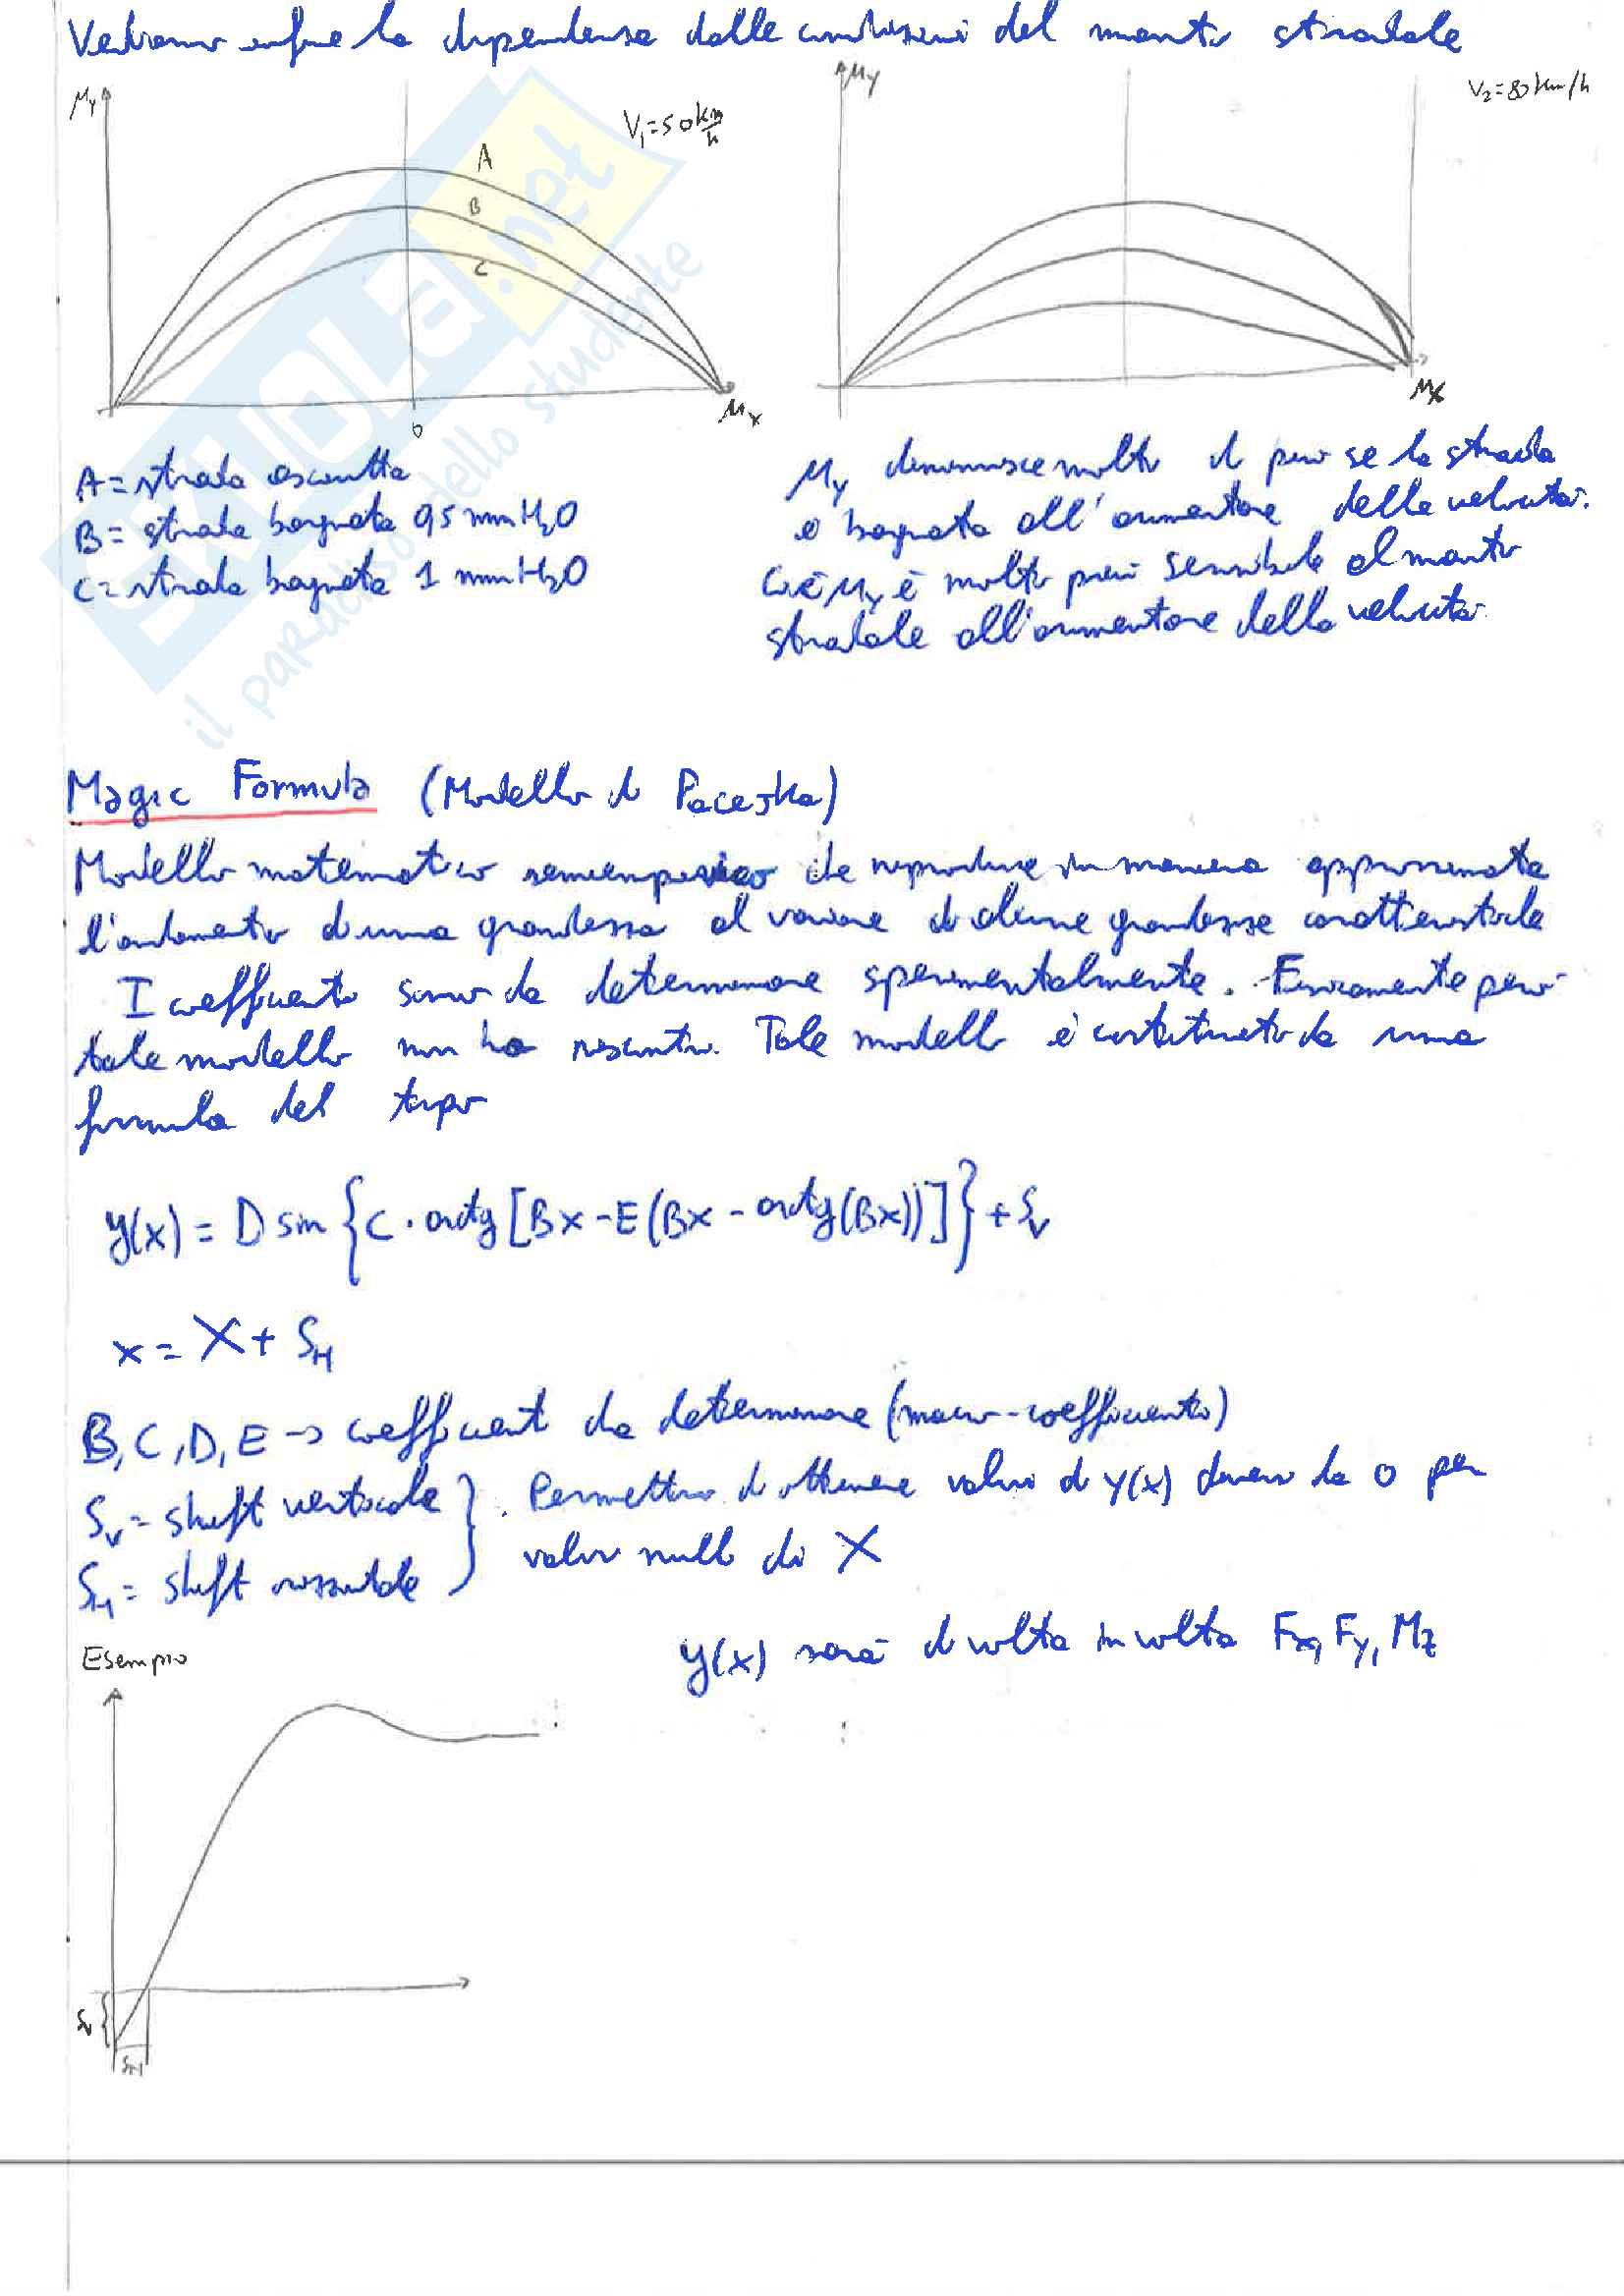 Vediamo infine la dipendenza dalle condizioni del manto stradale
μy
V1=50 km/h
A
B
C
0
μx
μy
V2=80 km/h
μx
A= strada asciutta
B= strada bagnata 0,5 mm H2O
C= strada bagnata 1 mm H2O
μy diminuisce molto di più se la strada
è bagnata all'aumentare della velocità.
Cioè μy è molto più sensibile al manto
stradale all'aumentare della velocità.
SKUOLA.net
il paradiso dello studente
Magic Formula (Modello di Pacejka)
Modello matematico semiempirico che riproduce in maniera approssimata
l'andamento di una grandezza al variare di alcune grandezze caratteristiche
I coefficienti sono da determinare sperimentalmente. Fisicamente però
tale modello non ha riscontro. Tale modello è costituito da una
formula del tipo
y(x) = D sin {C · arctg [Bx - E (Bx - arctg(Bx))]} + Sv
x = X + SH
B, C, D, E → coefficienti da determinare (macro-coefficienti)
Sv = shift verticale
SH = shift orizzontale
Permettono di ottenere valori di y(x) diversi da 0 per
valori nulli di X
y(x) sarà di volta in volta Fx, Fy, Mz
Esempio
Sv
SH